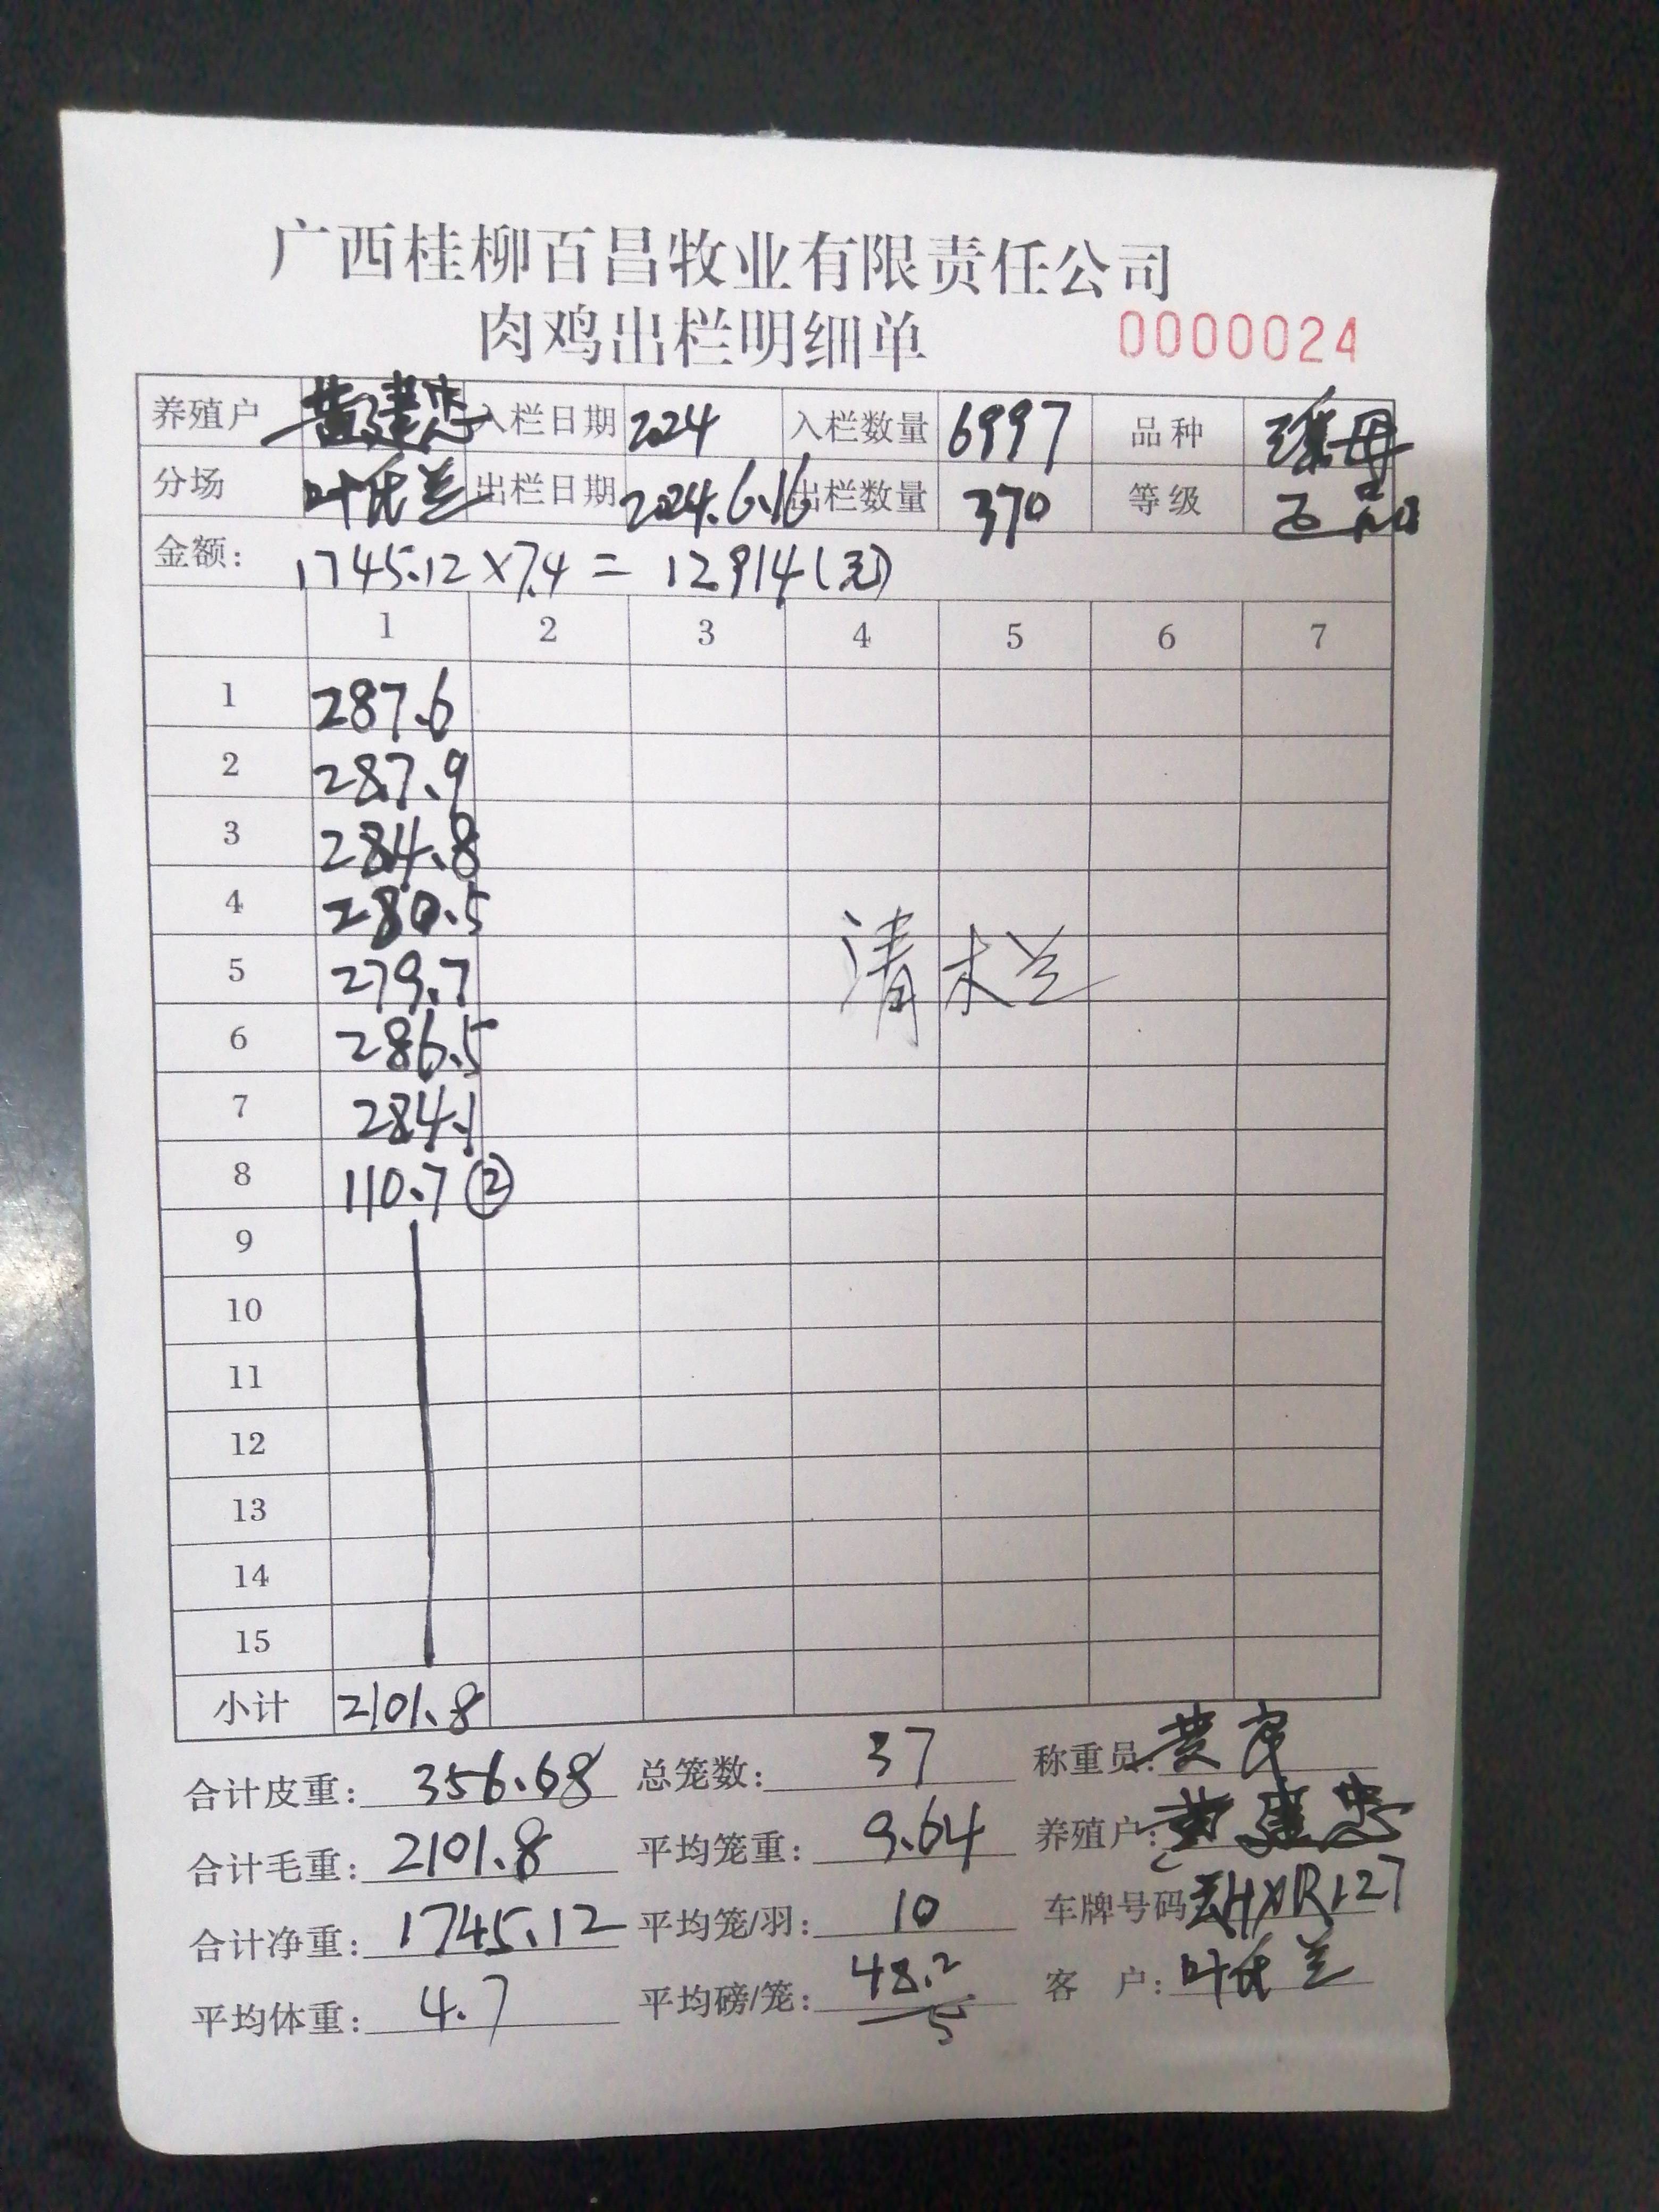 广西桂柳百昌牧业有限责任公司
肉鸡出栏明细单 0000024
养殖户 黄建忠 入栏日期 2024 入栏数量 6997 品种 母
分场 叶氏兰 出栏日期 2024.6.16 出栏数量 370 等级 正品
金额: 1745.12×7.4=12914(元)
1 2 3 4 5 6 7
1 287.6
2 287.9
3 284.8
4 280.5
5 279.7
清未兰
6 286.5
7 284.1
8 110.7 ②
9
10
11
12
13
14
15
小计 2101.8
合计皮重: 356.68 总笼数: 37 称重员: 黄
合计毛重: 2101.8 平均笼重: 9.64 养殖户: 黄建忠
合计净重: 1745.12 平均笼/羽: 10 车牌号码 R127
平均体重: 4.7 平均磅/笼: 48.2/5 客户: 叶氏兰